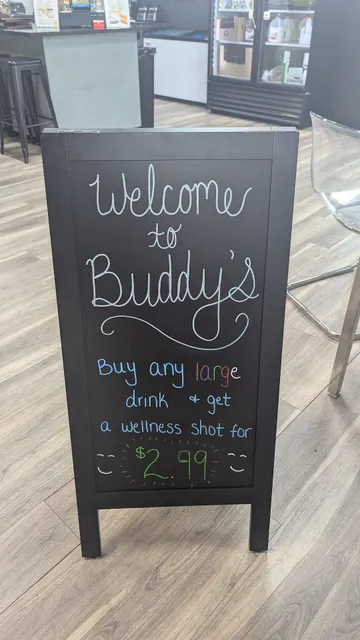 Welcome
to
Buddy's
Buy any large
drink & get
a wellness shot for
$2.99